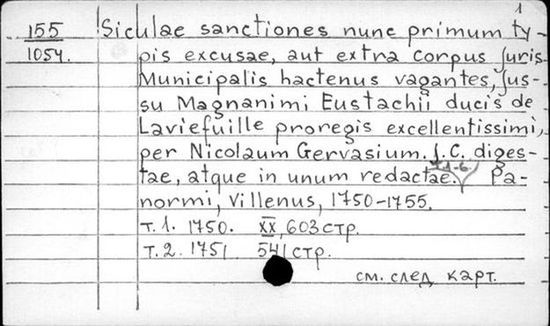 1
155 Siculae sanctiones nunc primum ty-
1054. pis excusae, aut extra corpus juris
Municipalis hactenus vagantes, jus-
su Magnanimi Eustachii ducis de
Laviefuille proregis excellentissimi,
per Nicolaum Gervasium. J.C. diges-
tae, atque in unum redactae. Pa-
т.1-6.
normi, Villenus, 1750-1755.
т.1. 1750. XX, 603 стр.
т.2. 1751 541 стр.
см. след карт.